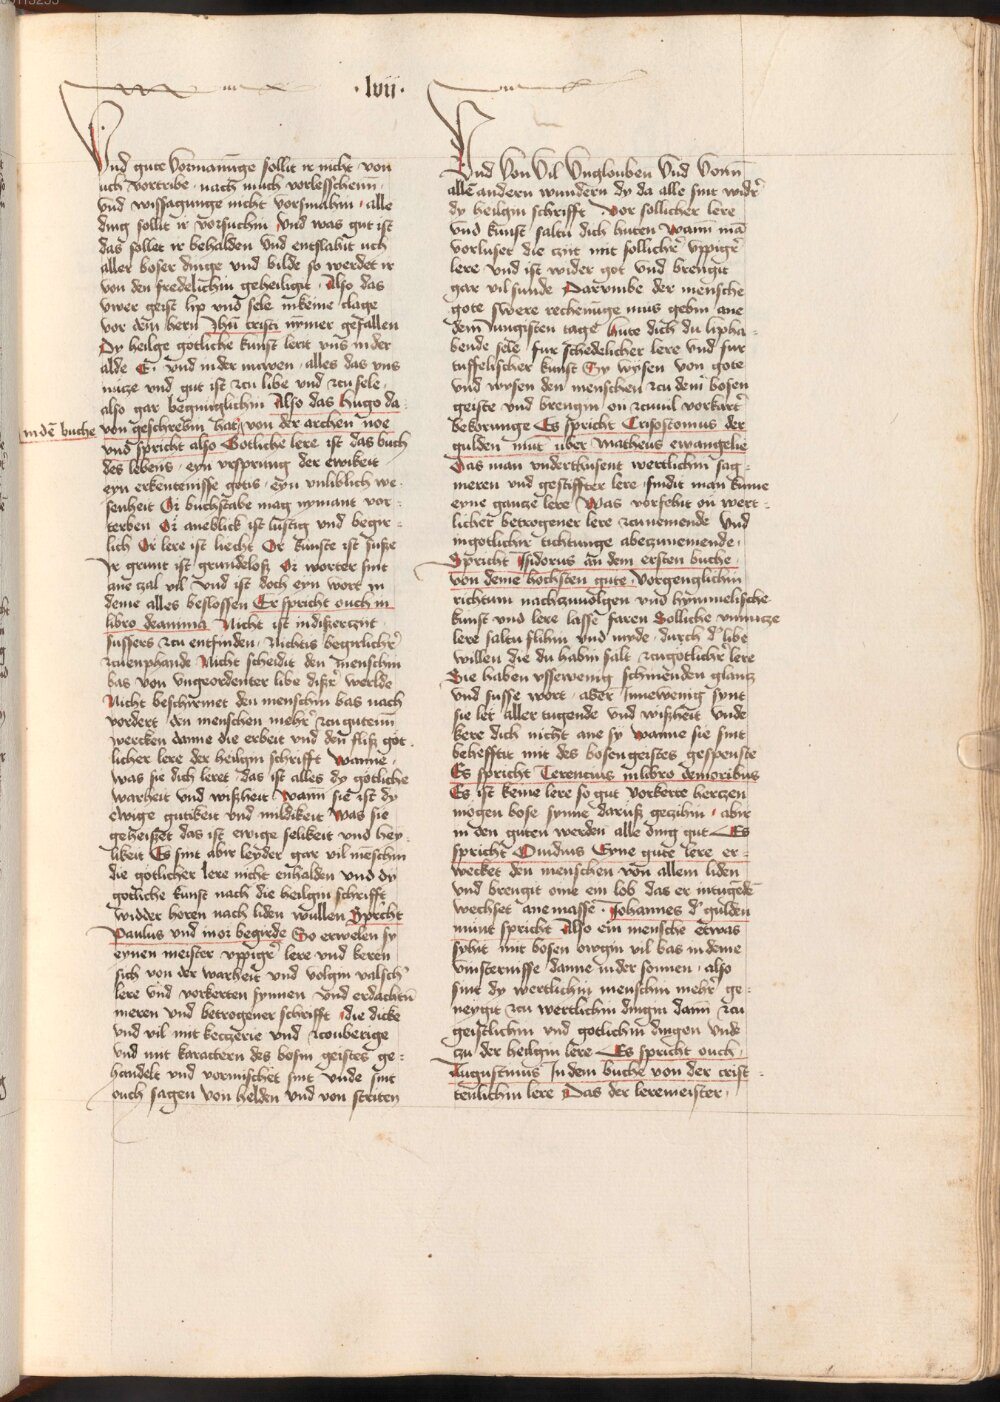 ·lvii·
Vnd gute vormanunge sollit ir nicht von
uch vortribe · nach muth vorlesschenn ·
vnd wissagunge nicht vorsmahin · alle
ding sollit ir vorsuchin vnd was gut ist
das sollet ir behalden vnd entslahit uch
aller boser dinge vnd bilde so werdet ir
von den fredelichin geheiligit · Also das
vwer geist lip vnd sele in keine clage
vor dem hern Jhu cristi nymer gefallen
Dy heilge gotliche kunst lerit vns in der
alde E · vnd in der nuwen · alles das vns
nutze vnd gut ist zcu libe vnd zcu sele ·
also gar begnuglichin Also das Hugo da
in dē buche von geschrebin hat von der archen noe
vnd spricht also Gotliche lere ist das buch
des lebens · eyn vrsprung der ewikeit
eyn erkentenisse gotis · eyn vnliblich we ·
senheit Or buchstabe mag nymant vor ·
terben Or aneblick ist lustig vnd begir ·
lich Or lere ist liecht Or kunste ist suße
Ir grunt ist grundeloß Or worter sint
ane zcal vil vnd ist doch eyn wort in
deme alles beslossen Er spricht ouch in
libro de anima Nicht ist in dißer czyt
sussers zcu entfinden · Nichtis begirlichir
zcu enphande Nicht scheidit den menschin
bas von vngeordenter libe dißir werlde
Nicht beschirmet den menschin bas nach
vordert den menschen mehir zcu gutenn
wercken danne die erbeit vnd den fliß got ·
licher lere der heilgin schrifft wanne ·
was sie dich leret das ist alles dy gotliche
warheit vnd wißheit wann sie ist dy
ewige gutikeit vnd mildikeit was sie
geheißet das ist ewige selikeit vnd hey ·
likeit Es sint abir leyder gar vil menschin
die gotlicher lere nicht enhalden vnd dy
gotliche kunst nach die heilgin schrifft
widder horen nach liden wullen Spricht
Paulus vnd in or begirde So erwelen sy
eynen meister vppigir lere vnd keren
sich von der warheit vnd volgin valschir
lere vnd vorkerten synnen vnd erdachtin
meren vnd betrogener schrifft · die dicke
vnd vil mit keczerie vnd zcouberige
vnd mit karactern des bosin geistes ge ·
handelt vnd vormischet sint vnde sint
ouch sagen von helden vnd von striten
Vnd von vil vnglouben vnd vonn
allē andern wundern dy da alle sint widir
dy heilgin schrifft Vor sollicher lere
vnd kunst saltu dich huten wann mā
vorluset die czit mit sollichir vppigir
lere vnd ist wider got vnd brengit
gar vil sunde Darvmbe der mensche
gote swere rechenunge mus gebin ane
dem Jungisten tage Hute dich du lipha ·
bende sele fur schedelicher lere vnd fur
tuffelischer kunst Sy wysen von gote
vnd wysen den menschen zcu dem bosen
geiste vnd brengin on zcuuil vorkartir
bekorunge Es spricht Crisostomus der
gulden munt uber Matheus ewangelie
Das man vnder thusent wertlichin sag ·
meren vnd gestiffter lere findit man kume
eyne gantze lere Was vorsehit on wert ·
licher betrogener lere zcunemende vnd
in gotlichir tichtunge abeczunemende ·
Spricht Isidorus an dem ersten buche ·
von deme hochsten gute · Vorgenglichin
richtum nachzcuvolgen vnd hymmelische
kunst vnd lere lasse faren Solliche vnnutze
lere saltu flihin vnd myde · durch dir libe
willen die du habin salt zcu gotlichir lere
Sie haben vssewenig schinenden glantz
vnd susse wort · aber Innewenig synt
sie ler aller tugende vnd wißheit vnde
kere dich nicht ane sy wanne sie sint
beheffttit mit des bosen geistes gespenste
Es spricht Terencius in libro de moribus
Es ist keine lere so gut vorkerte hertzen
mogen bose synne daruß gezcihin · abir
in den guten werden alle ding gut Es
spricht Ouidius Eyne gute lere er ·
wecket den menschen von allem liden
vnd brengit ome ein lob das er in tugēde
wechset ane masse · Johannes dir gulden
munt spricht Also ein mensche etwas
syhit mit bosen ovgin vil bas in deme
vinsternisse danne in der sonnen · also
sint dy wertlichin menschin mehir ge ·
neygit zcu wertlichin dingin dann zcu
geistlichin vnd gotlichin dingen vnde
zu der heilgin lere Es spricht ouch ·
Augustinus In dem buche von der crist ·
tenlichin lere Das der leremeister ·